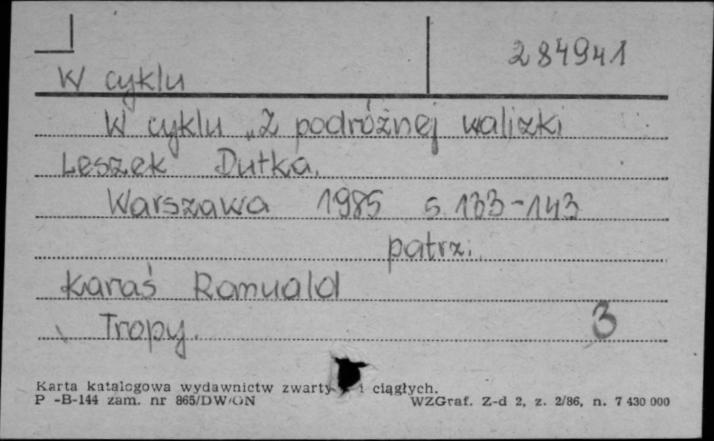 284941
W cyklu
W cyklu „Z podróżnej walizki
Leszek Dutka.
Warszawa 1985 s. 133-143
patrz:
Karaś Romuald
Tropy. 3
Karta katalogowa wydawnictw zwarty i ciągłych.
P -B-144 zam. nr 865/DW/ON WZGraf. Z-d 2, z. 2/86, n. 7 430 000